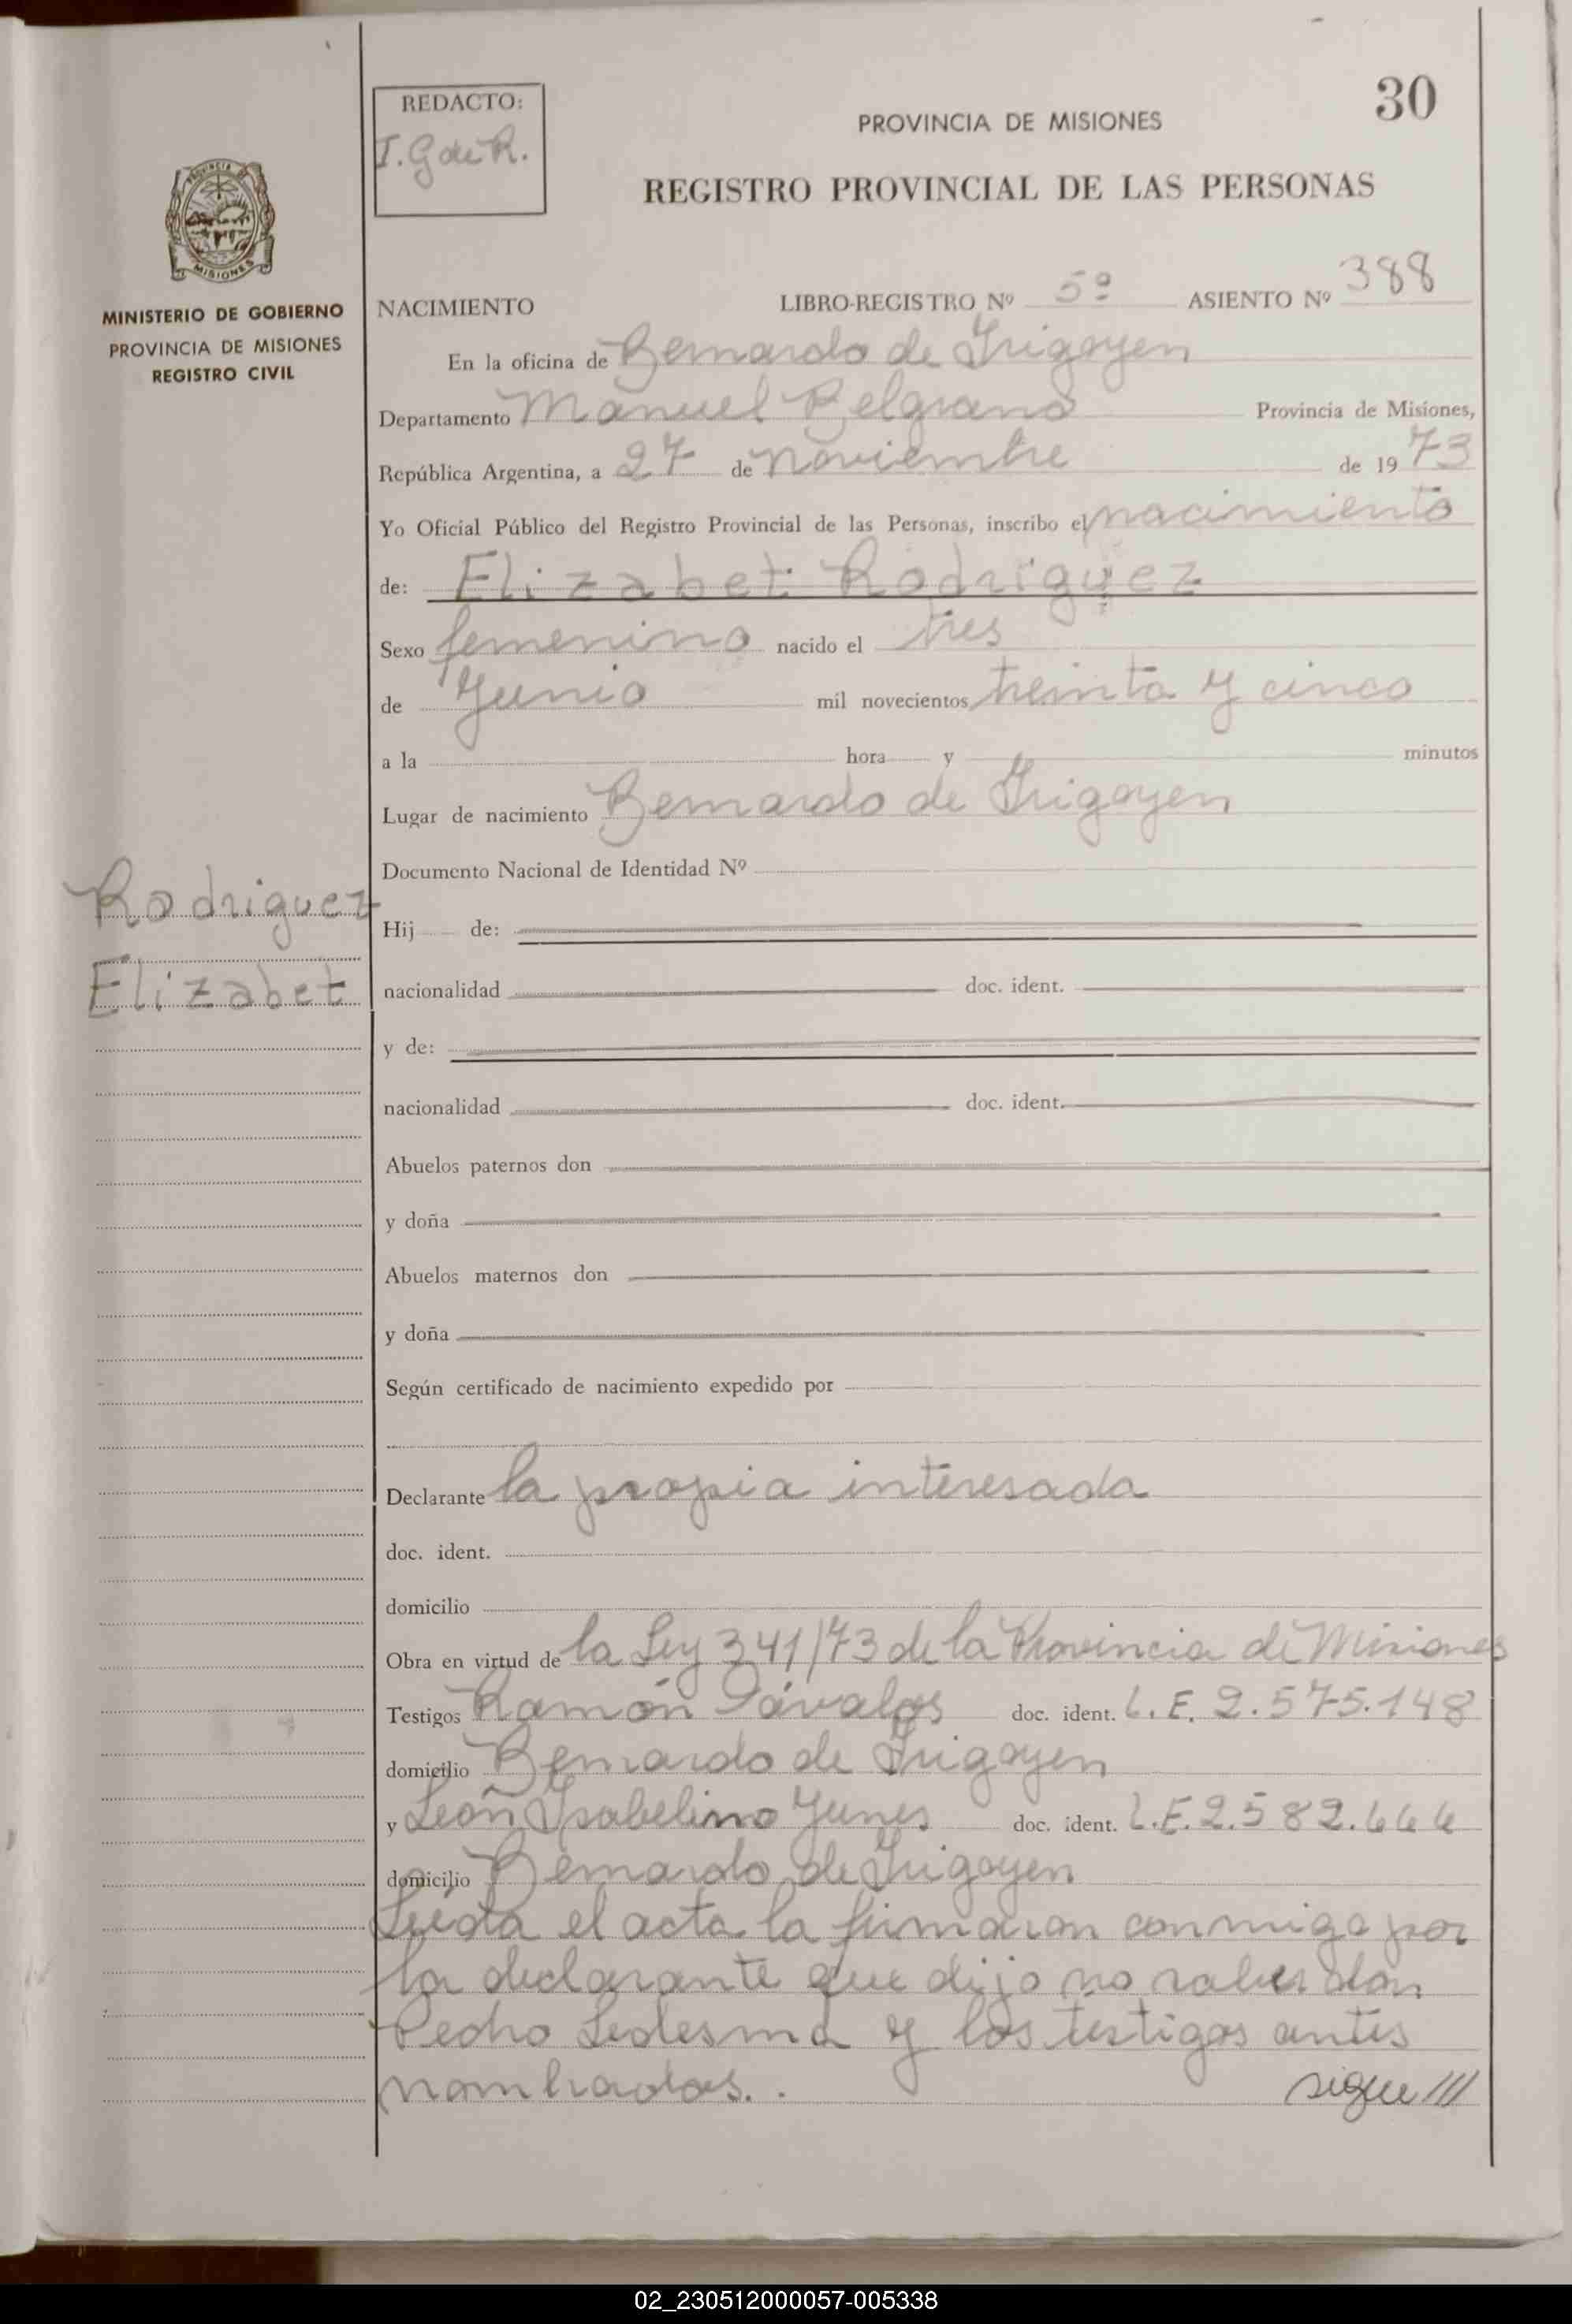 30
REDACTO:
I. G de R.
PROVINCIA DE MISIONES
REGISTRO PROVINCIAL DE LAS PERSONAS
PROVINCIA DE
MISIONES
MINISTERIO DE GOBIERNO
PROVINCIA DE MISIONES
REGISTRO CIVIL
NACIMIENTO LIBRO-REGISTRO Nº 5º ASIENTO Nº 388
En la oficina de Bernardo de Irigoyen
Departamento Manuel Belgrano Provincia de Misiones,
República Argentina, a 27 de noviembre de 1973
Yo Oficial Público del Registro Provincial de las Personas, inscribo el nacimiento
de: Elizabet Rodriguez
Sexo femenino nacido el tres
de Junio mil novecientos treinta y cinco
a la hora y minutos
Lugar de nacimiento Bernardo de Irigoyen
Documento Nacional de Identidad Nº
Rodriguez
Elizabet
Hij de:
nacionalidad doc. ident.
y de:
nacionalidad doc. ident.
Abuelos paternos don
y doña
Abuelos maternos don
y doña
Según certificado de nacimiento expedido por
Declarante la propia interesada
doc. ident.
domicilio
Obra en virtud de la Ley 341/73 de la Provincia de Misiones
Testigos Ramón Dávalos doc. ident. L.E. 2.575.148
domicilio Bernardo de Irigoyen
y León Ysabelino Yunes doc. ident. L.E. 2.582.666
domicilio Bernardo de Irigoyen
Leída el acta la firmaron conmigo por
la declarante que dijo no saber don
Pedro Ledesma y los testigos antes
nombrados. . sigue ///
02_230512000057-005338